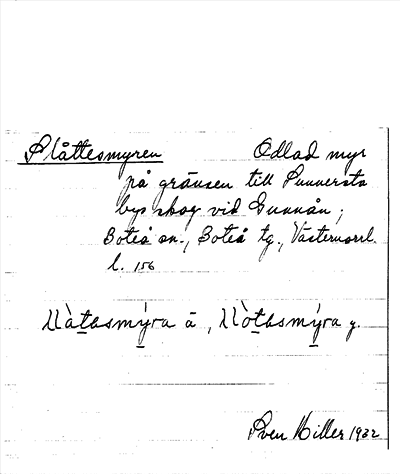 Slåttesmyren Odlad myr
på gränsen till Sunnersta
bys skog vid Gunnån;
Boteå sn., Boteå tg., Västernorrl.
l. 156
slåtasmýra ä, slòtasmýra y.
Sven Hiller 1932